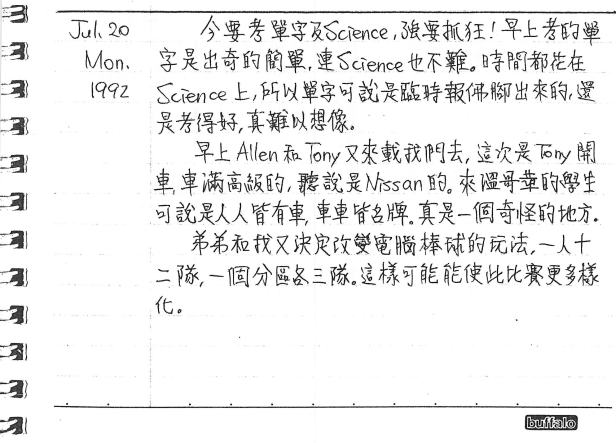 Jul. 20
Mon.
1992
今要考單字及Science,強要抓狂!早上考的單
字是出奇的簡單,連Science也不難。時間都花在
Science上,所以單字可說是臨時報佛腳出來的,還
是考得好,真難以想像。
早上Allen和Tony又來載我們去,這次是Tony開
車,車滿高級的,聽說是Nissan的。來溫哥華的學生
可說是人人皆有車,車車皆名牌。真是一個奇怪的地方.
弟弟和我又決定改變電腦棒球的玩法,一人十
二隊,一個分區各三隊。這樣可能能使此比賽更多樣
化。
buffalo